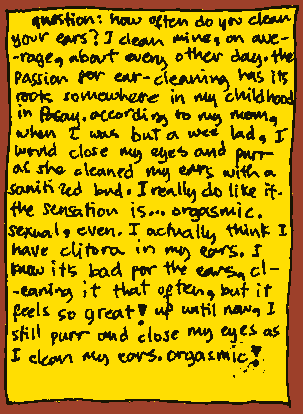 question: how often do you clean
your ears? I clean mine, on ave-
-rage, about every other day. the
passion for ear-cleaning has its
roots somewhere in my childhood
in Pasay. according to my mom,
when I was but a wee lad, I
would close my eyes and purr
as she cleaned my ears with a
sanitized bud. I really do like it.
the sensation is... orgasmic.
sexual, even. I actually think I
have clitora in my ears. I
know its bad for the ears, cl-
-eaning it that often, but it
feels so great! up until now, I
still purr and close my eyes as
I clean my ears. orgasmic!